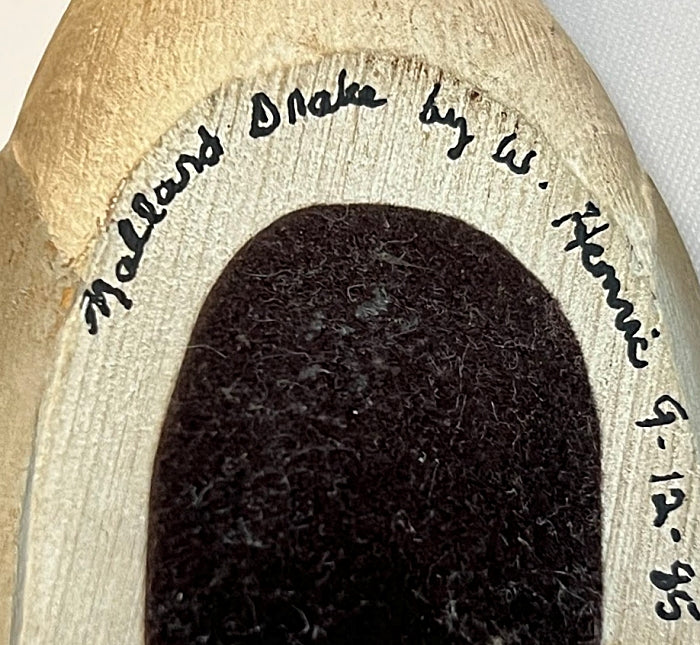 Mallard Drake by W. Hennic 9-12-85